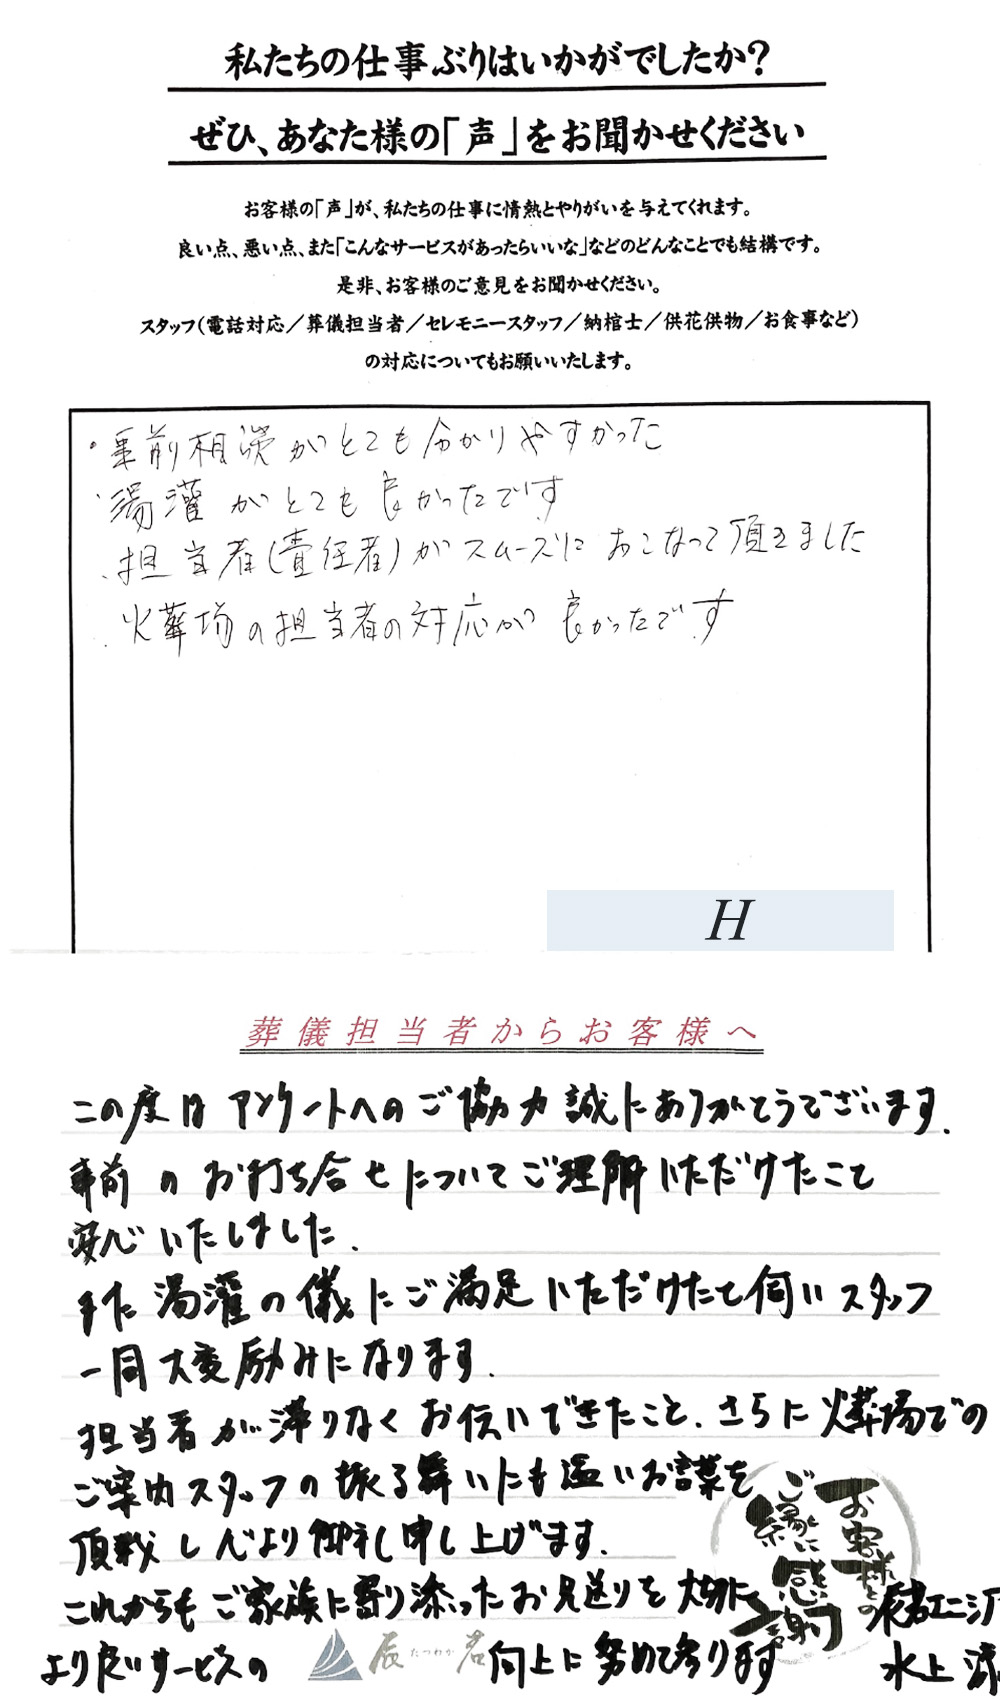 私たちの仕事ぶりはいかがでしたか？
ぜひ、あなた様の「声」をお聞かせください
お客様の「声」が、私たちの仕事に情熱とやりがいを与えてくれます。
良い点、悪い点、また「こんなサービスがあったらいいな」などのどんなことでも結構です。
是非、お客様のご意見をお聞かせください。
スタッフ（電話対応／葬儀担当者／セレモニースタッフ／納棺士／供花供物／お食事など）
の対応についてもお願いいたします。
・事前相談がとても分かりやすかった
・湯灌がとても良かったです
・担当者(責任者)がスムーズにおこなって頂きました
・火葬場の担当者の対応が良かったです
H
葬儀担当者からお客様へ
この度はアンケートへのご協力誠にありがとうございます.
事前のお打ち合せについてご理解いただけたこと
安心いたしました.
また湯灌の儀にご満足いただけたと伺いスタッフ
一同大変励みになります.
担当者が滞りなくお伝いできたこと、さらに火葬場での
ご案内スタッフの振る舞いにも温いお言葉を
頂戴し心より御礼申し上げます.
これからもご家族に寄り添ったお見送りを大切に
より良いサービスの向上に努めて参ります
お客様との
ご縁に
感謝
辰たつわか君
水上